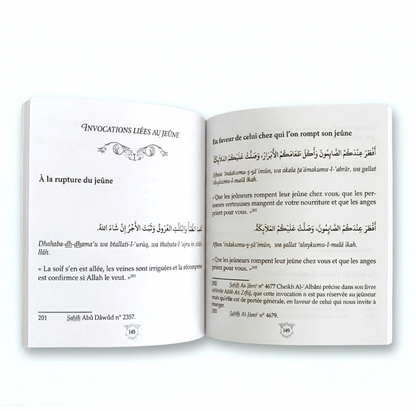 INVOCATIONS LIÉES AU JEÛNE
À la rupture du jeûne
ذَهَبَ الظَّمَأُ وَابْتَلَّتِ الْعُرُوقُ وَثَبَتَ الْأَجْرُ إِنْ شَاءَ اللهُ.
Dhahaba-dh-dhama'u wa btallati-l-'urûq, wa thabata-l-ajru in shâ'a
llâh.
« La soif s'en est allée, les veines sont irriguées et la récompense
est confirmée si Allah le veut. »²⁰¹
201 Sahîh Abâ Dâwûd n° 2357.
145
En faveur de celui chez qui l'on rompt son jeûne
أَفْطَرَ عِنْدَكُمُ الصَّائِمُونَ، وَأَكَلَ طَعَامَكُمُ الْأَبْرَارُ، وَصَلَّتْ عَلَيْكُمُ الْمَلَائِكَةُ.
Aftara 'indakumu-ṣ-ṣâ'imûn, wa akala ṭa'âmakumu-l-abrâr, wa ṣallat
'alaykumu-l-malâ'ikah.
« Que les jeûneurs rompent leur jeûne chez vous, que les per-
sonnes vertueuses mangent de votre nourriture et que les anges
prient pour vous. »
أَفْطَرَ عِنْدَكُمُ الصَّائِمُونَ، وَصَلَّتْ عَلَيْكُمُ الْمَلَائِكَةُ.
Aftara 'indakumu-ṣ-ṣâ'imûn, wa ṣallat 'alaykumu-l-malâ'ikah.
« Que les jeûneurs rompent leur jeûne chez vous et que les anges
prient pour vous. »
Sahîh Al-Jâmi' n° 4677 Cheikh Al-'Albânî précise dans son livre
que cette invocation n'est pas réservée au jeûneur
mais qu'elle est de portée générale, en faveur de celui qui nous invite à
manger.
Sahîh Al-Jâmi' n° 4679.